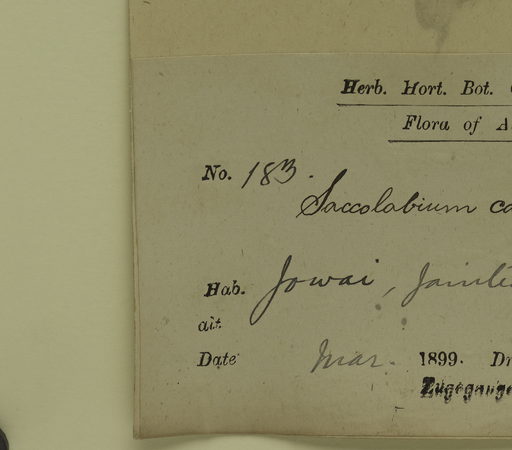 Herb. Hort. Bot.
Flora of A
No. 183.
Saccolabium ca
Hab. Jowai, Jainti
alt.
Date Mar. 1899. D
Zugegange